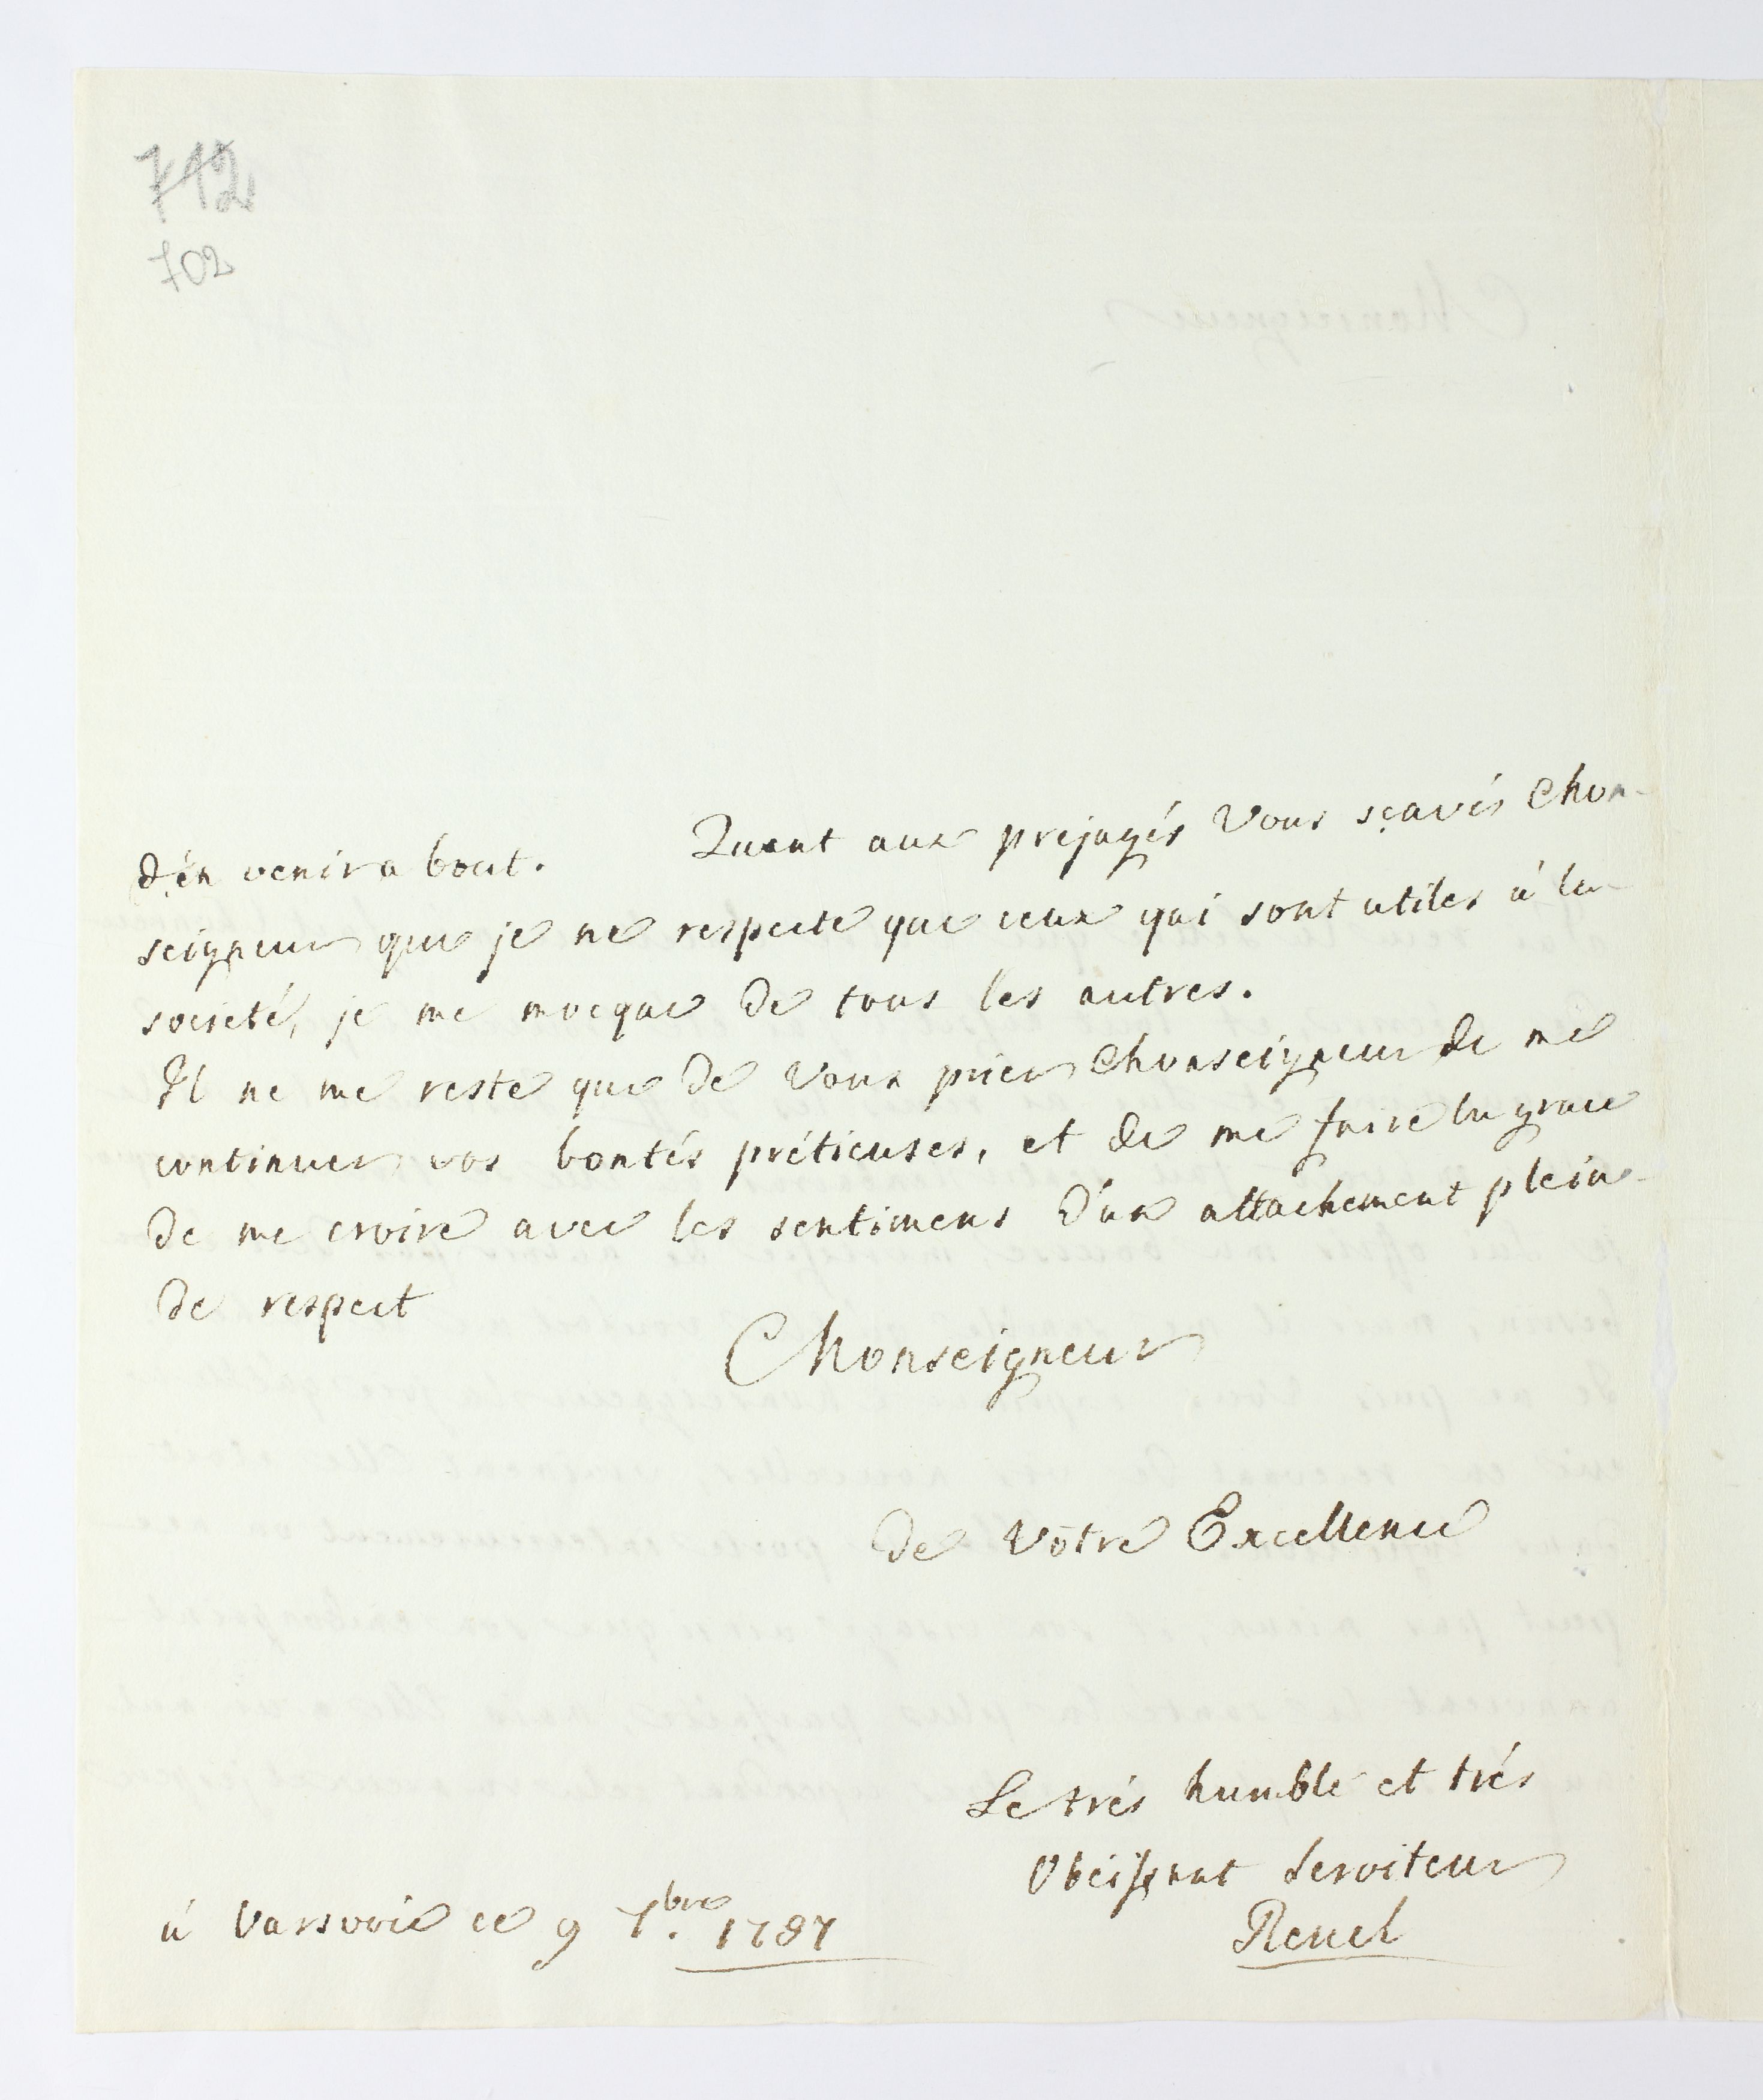 712
702
d'en venir a bout. Quant aux prejugés Vous sçavés Mon-
seigneur que je ne respecte que ceux qui sont utiles à la
societé, je me mocque de tous les autres.
Il ne me reste que de Vous prier Monseigneur de me
continuer vos bontés prétieuses, et de me faire la grace
de me croire avec les sentimens d'un attachement plein
de respect
Monseigneur
de Votre Excellence
Le trés humble et trés
Obéissant Serviteur
à Varsovie ce 9 7bre. 1787
Renel